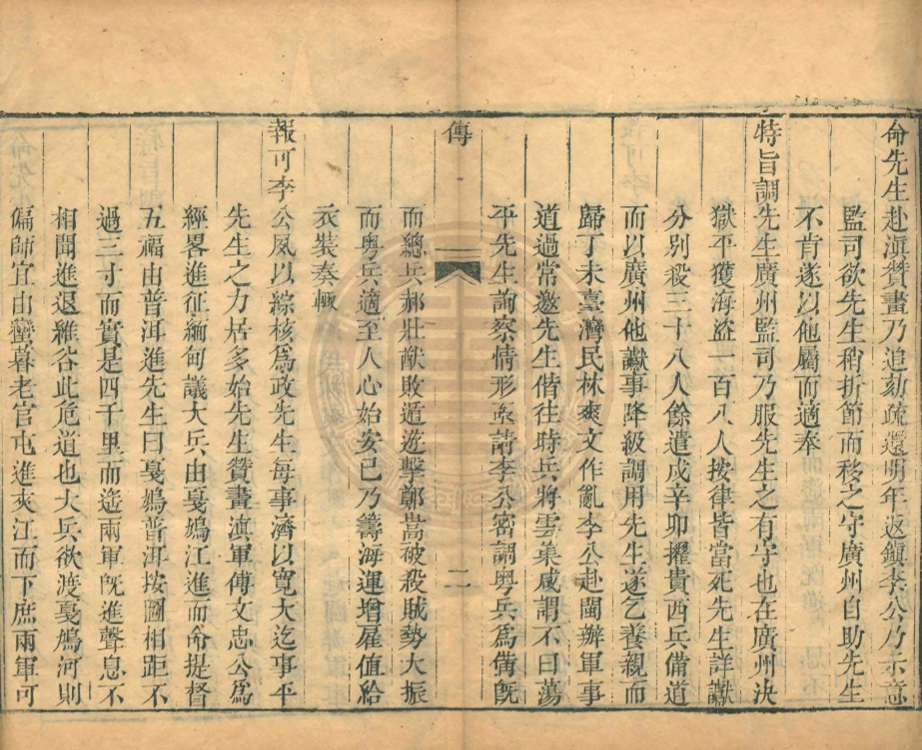 命先生赴滇贊畫乃追劾疏還明年返鎮李公乃示意
監司欲先生稍折節而移之守廣州自助先生
不肯遂以他屬而適奉
特旨調先生廣州監司乃服先生之有守也在廣州決
獄平獲海盜一百八人按律皆當死先生詳讞
分別殺三十八人餘遣戍辛卯擢貴西兵備道
而以廣州他讞事降級調用先生遂乞養親而
歸丁未臺灣民林爽文作亂李公赴閩辦軍事
道過常邀先生偕往時兵將雲集咸謂不日蕩
平先生詢察情形亟請李公密調粵兵為備旣
傳
二
而總兵郝壯猷敗遁遊擊鄭嵩破殺賊勢大振
而粵兵適至人心始安已乃籌海運增雇值給
衣裝奏輒
報可李公夙以綜核爲政先生每事濟以寬大迄事平
先生之力居多始先生贊畫滇軍傅文忠公爲
經畧進征緬甸議大兵由戞鳩江進而命提督
五福由普洱進先生曰戞鳩普洱按圖相距不
過三寸而實是四千里而遙兩軍旣進聲息不
相聞進退維谷此危道也大兵欲渡戞鳩河則
偏師宜由蠻暮老官屯進夾江而下庶兩軍可